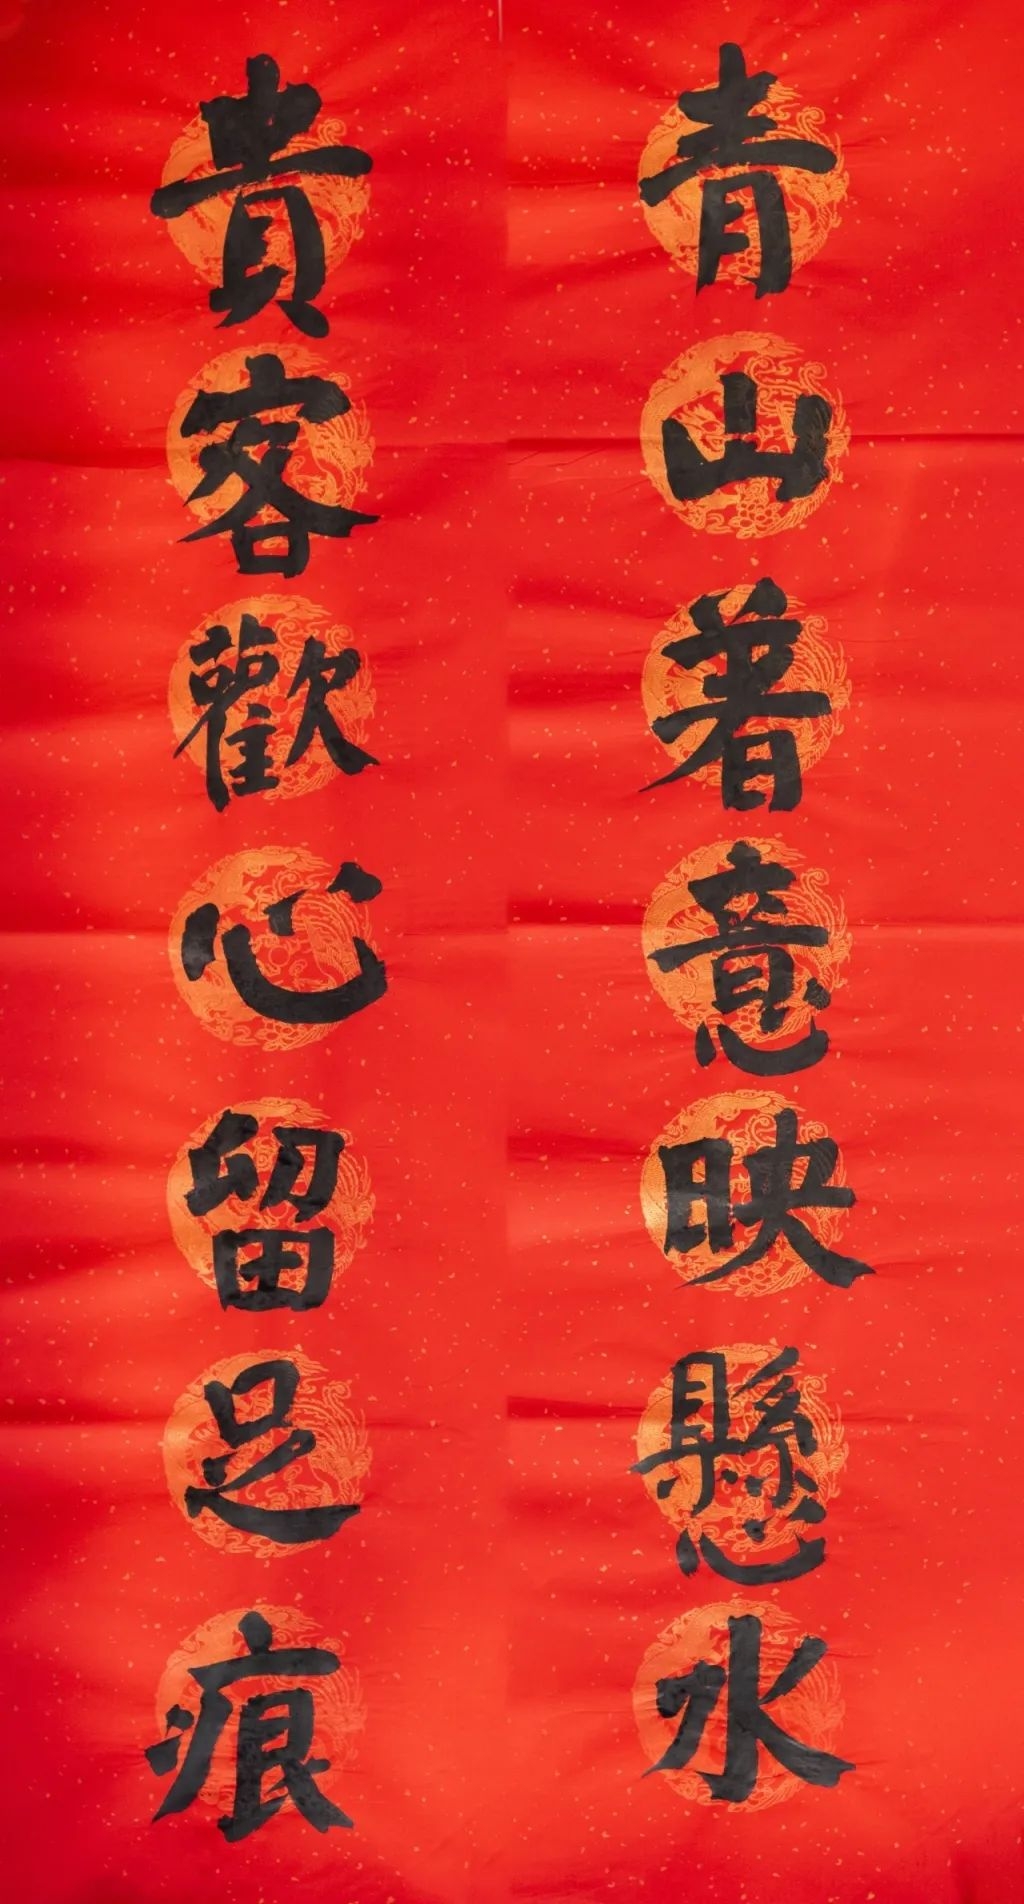 青山着意映懸水
貴客歡心留足痕